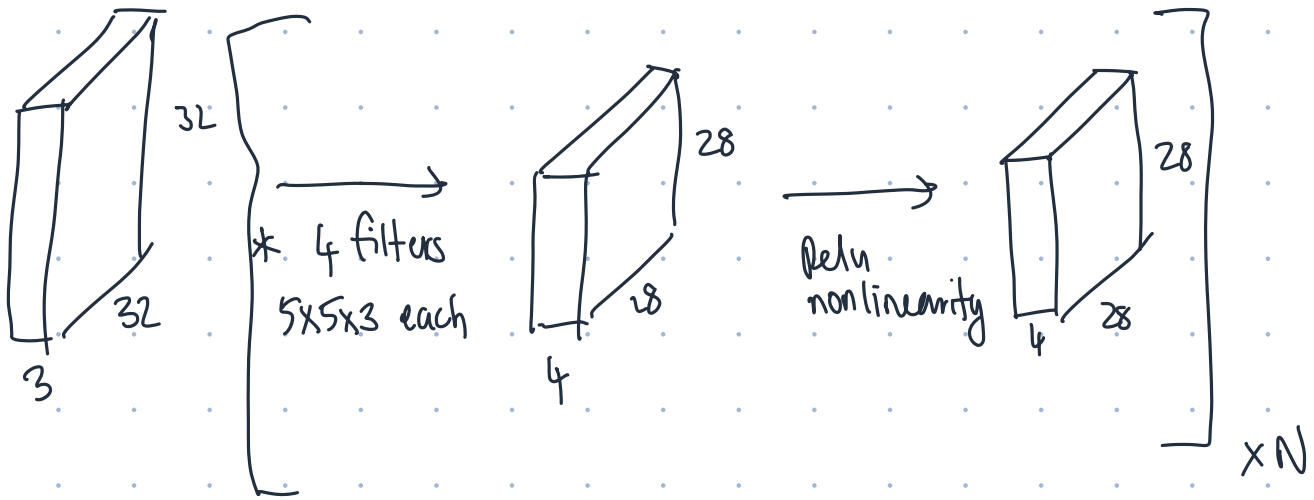 32
32
3
* 4 filters
5x5x3 each
28
28
4
Relu
nonlinearity
28
28
4
x N